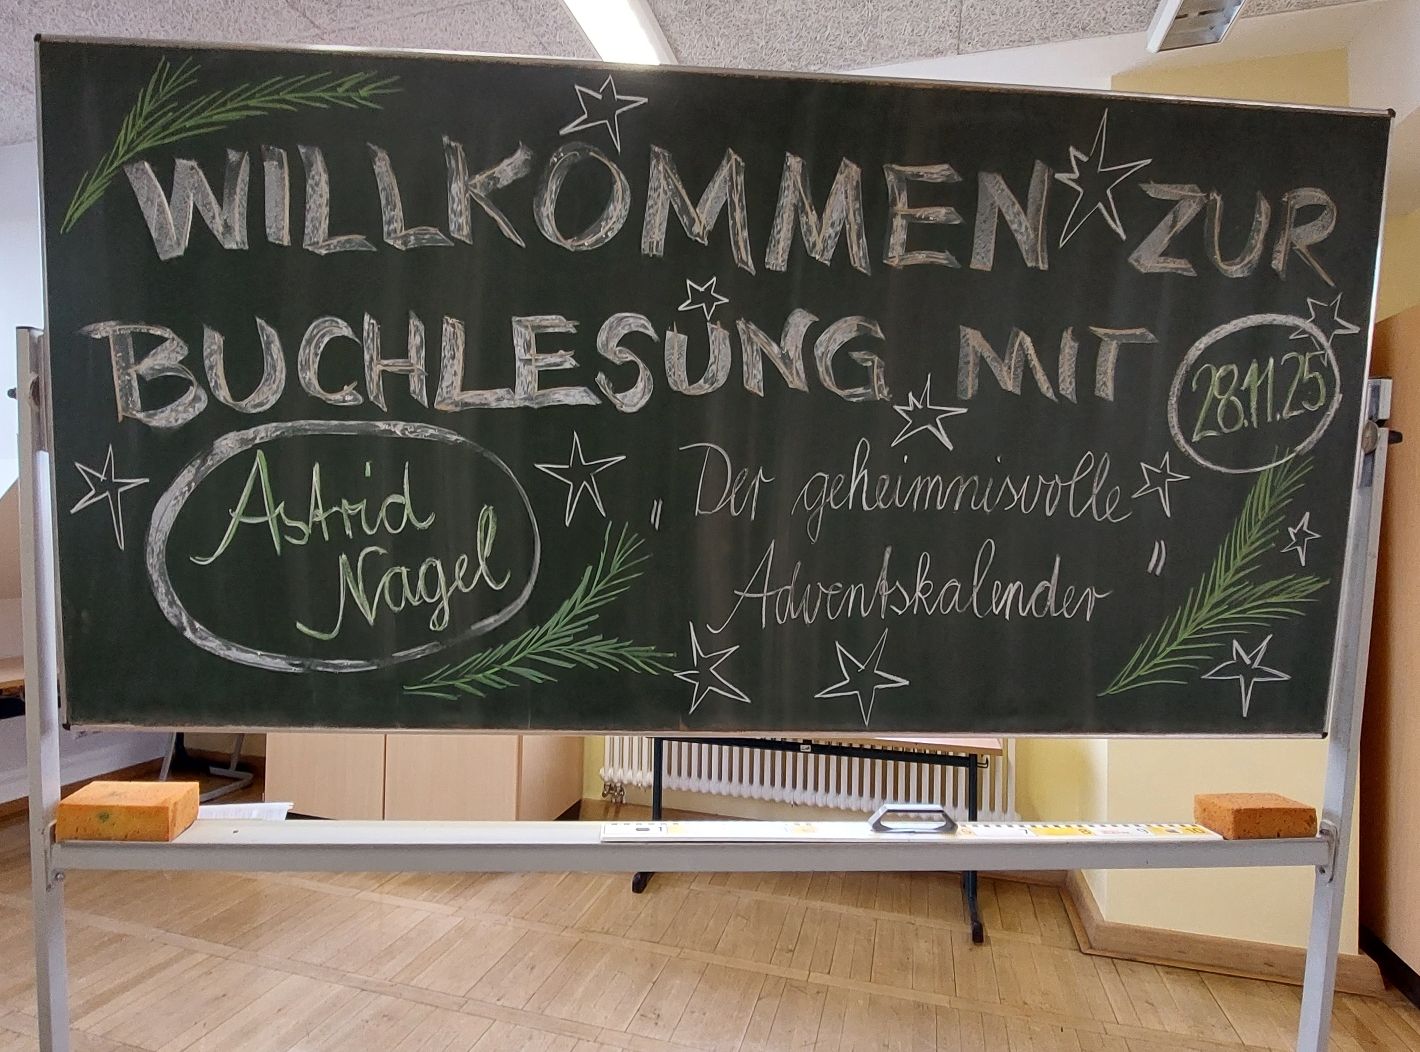 WILLKOMMEN ZUR
BUCHLESUNG MIT
28.11.25
Astrid
Nagel
„Der geheimnisvolle
Adventskalender"
1 7 8 9 10